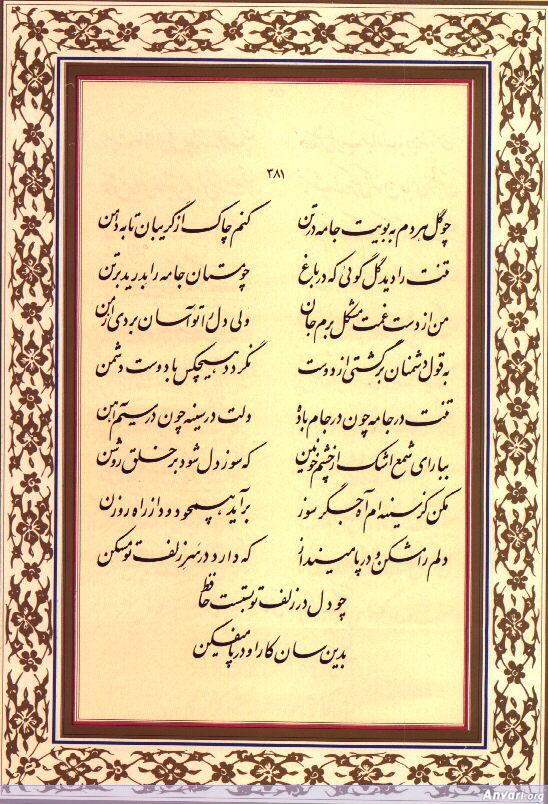 ۳۸۱
چو گل هر دم به بویت جامه در تن کنم چاک از گریبان تا به دامن
تنت را دید گل گوئی که در باغ چو مستان جامه را بدرید بر تن
من از دست غمت مشکل برم جان ولی دل را تو آسان بردی از من
به قول دشمنان برگشتی از دوست نگردد هیچکس با دوست دشمن
تنت در جامه چون در جام باده دلت در سینه چون در سیم آهن
ببار ای شمع اشک از چشم خونین که سوز دل شود بر خلق روشن
مکن کز سینه‌ام آه جگرسوز برآید همچو دود از راه روزن
دلم را مشکن و در پا مینداز که دارد در سر زلف تو مسکن
چو دل در زلف تو بستست حافظ
بدین سان کار او در پا میفکن
Anvari.org